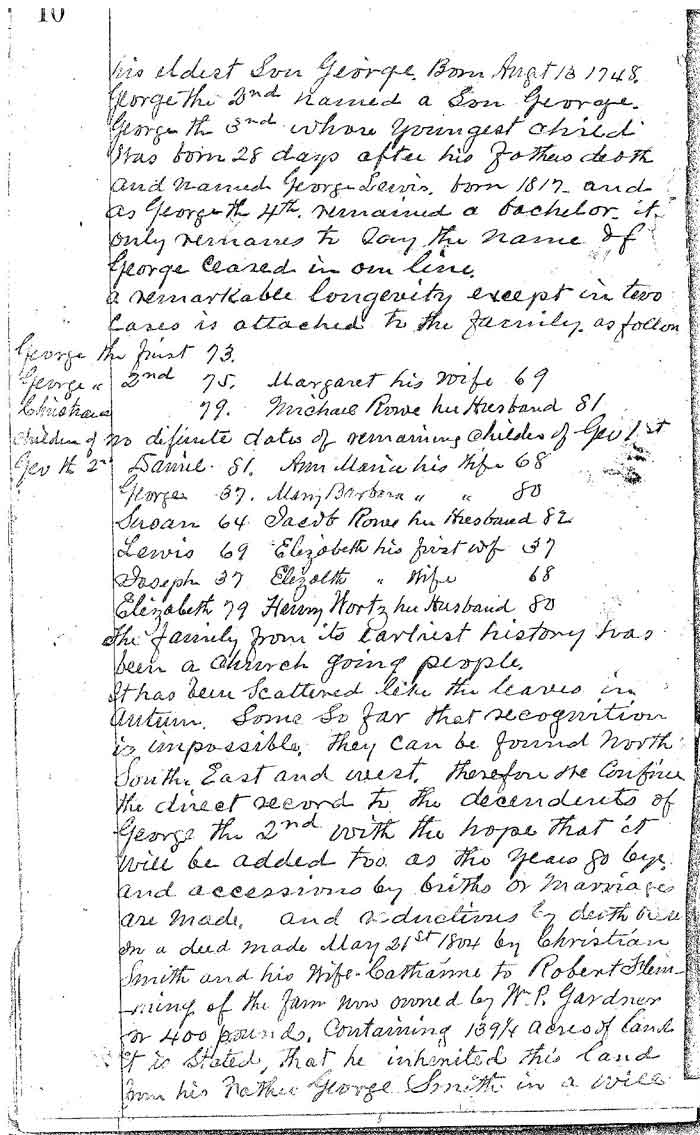 10
his eldest Son George. Born Augt 13 1748.
George the 2nd named a Son George.
George th 3nd whose Youngest child
was born 28 days after his Fathers death
and named George Lewis. born 1817 and
as George th 4th. remained a bachelor. it
only remanes to Say the name of
George Ceased in our line.
a remarkable longevity except in two
Cases is attached to the family. as follow
George the first 73.
George " 2nd 75. Margaret his wife 69
79. Michael Rowe her Husband 81
Children of no difinite dates of remaining childen of Geo 1st
Geo th 2nd Daniel 81. Ann Maria his Wife 68
George 37. Mary Barbara " " 80
Susan 64 Jacob Rowe her Husband 82
Lewis 69 Elizabeth his first wf 37
Joseph 37 Elizabeth " Wife 68
Elizabeth 79 Henry Wortz her Husband 80
the family from its earliest history has
been a Church going people.
It has been Scattered like the leaves in
Autum. Some So far that recognition
is impossible. they can be found North
South. East and west. therefore we Confine
the direct record to the decendents of
George the 2nd with the hope that it
will be added too as the years go bye.
and accessions by births or Marriages
are made. and reductions by death
In a deed made May 21st 1804 by Christian
Smith and his Wife Catharine to Robert Flem-
-ming of the farm now owned by W. P. Gardner
or 400 pounds. Containing 139¼ acres of land
it is Stated, that he inherited this land
from his Father George Smith in a will